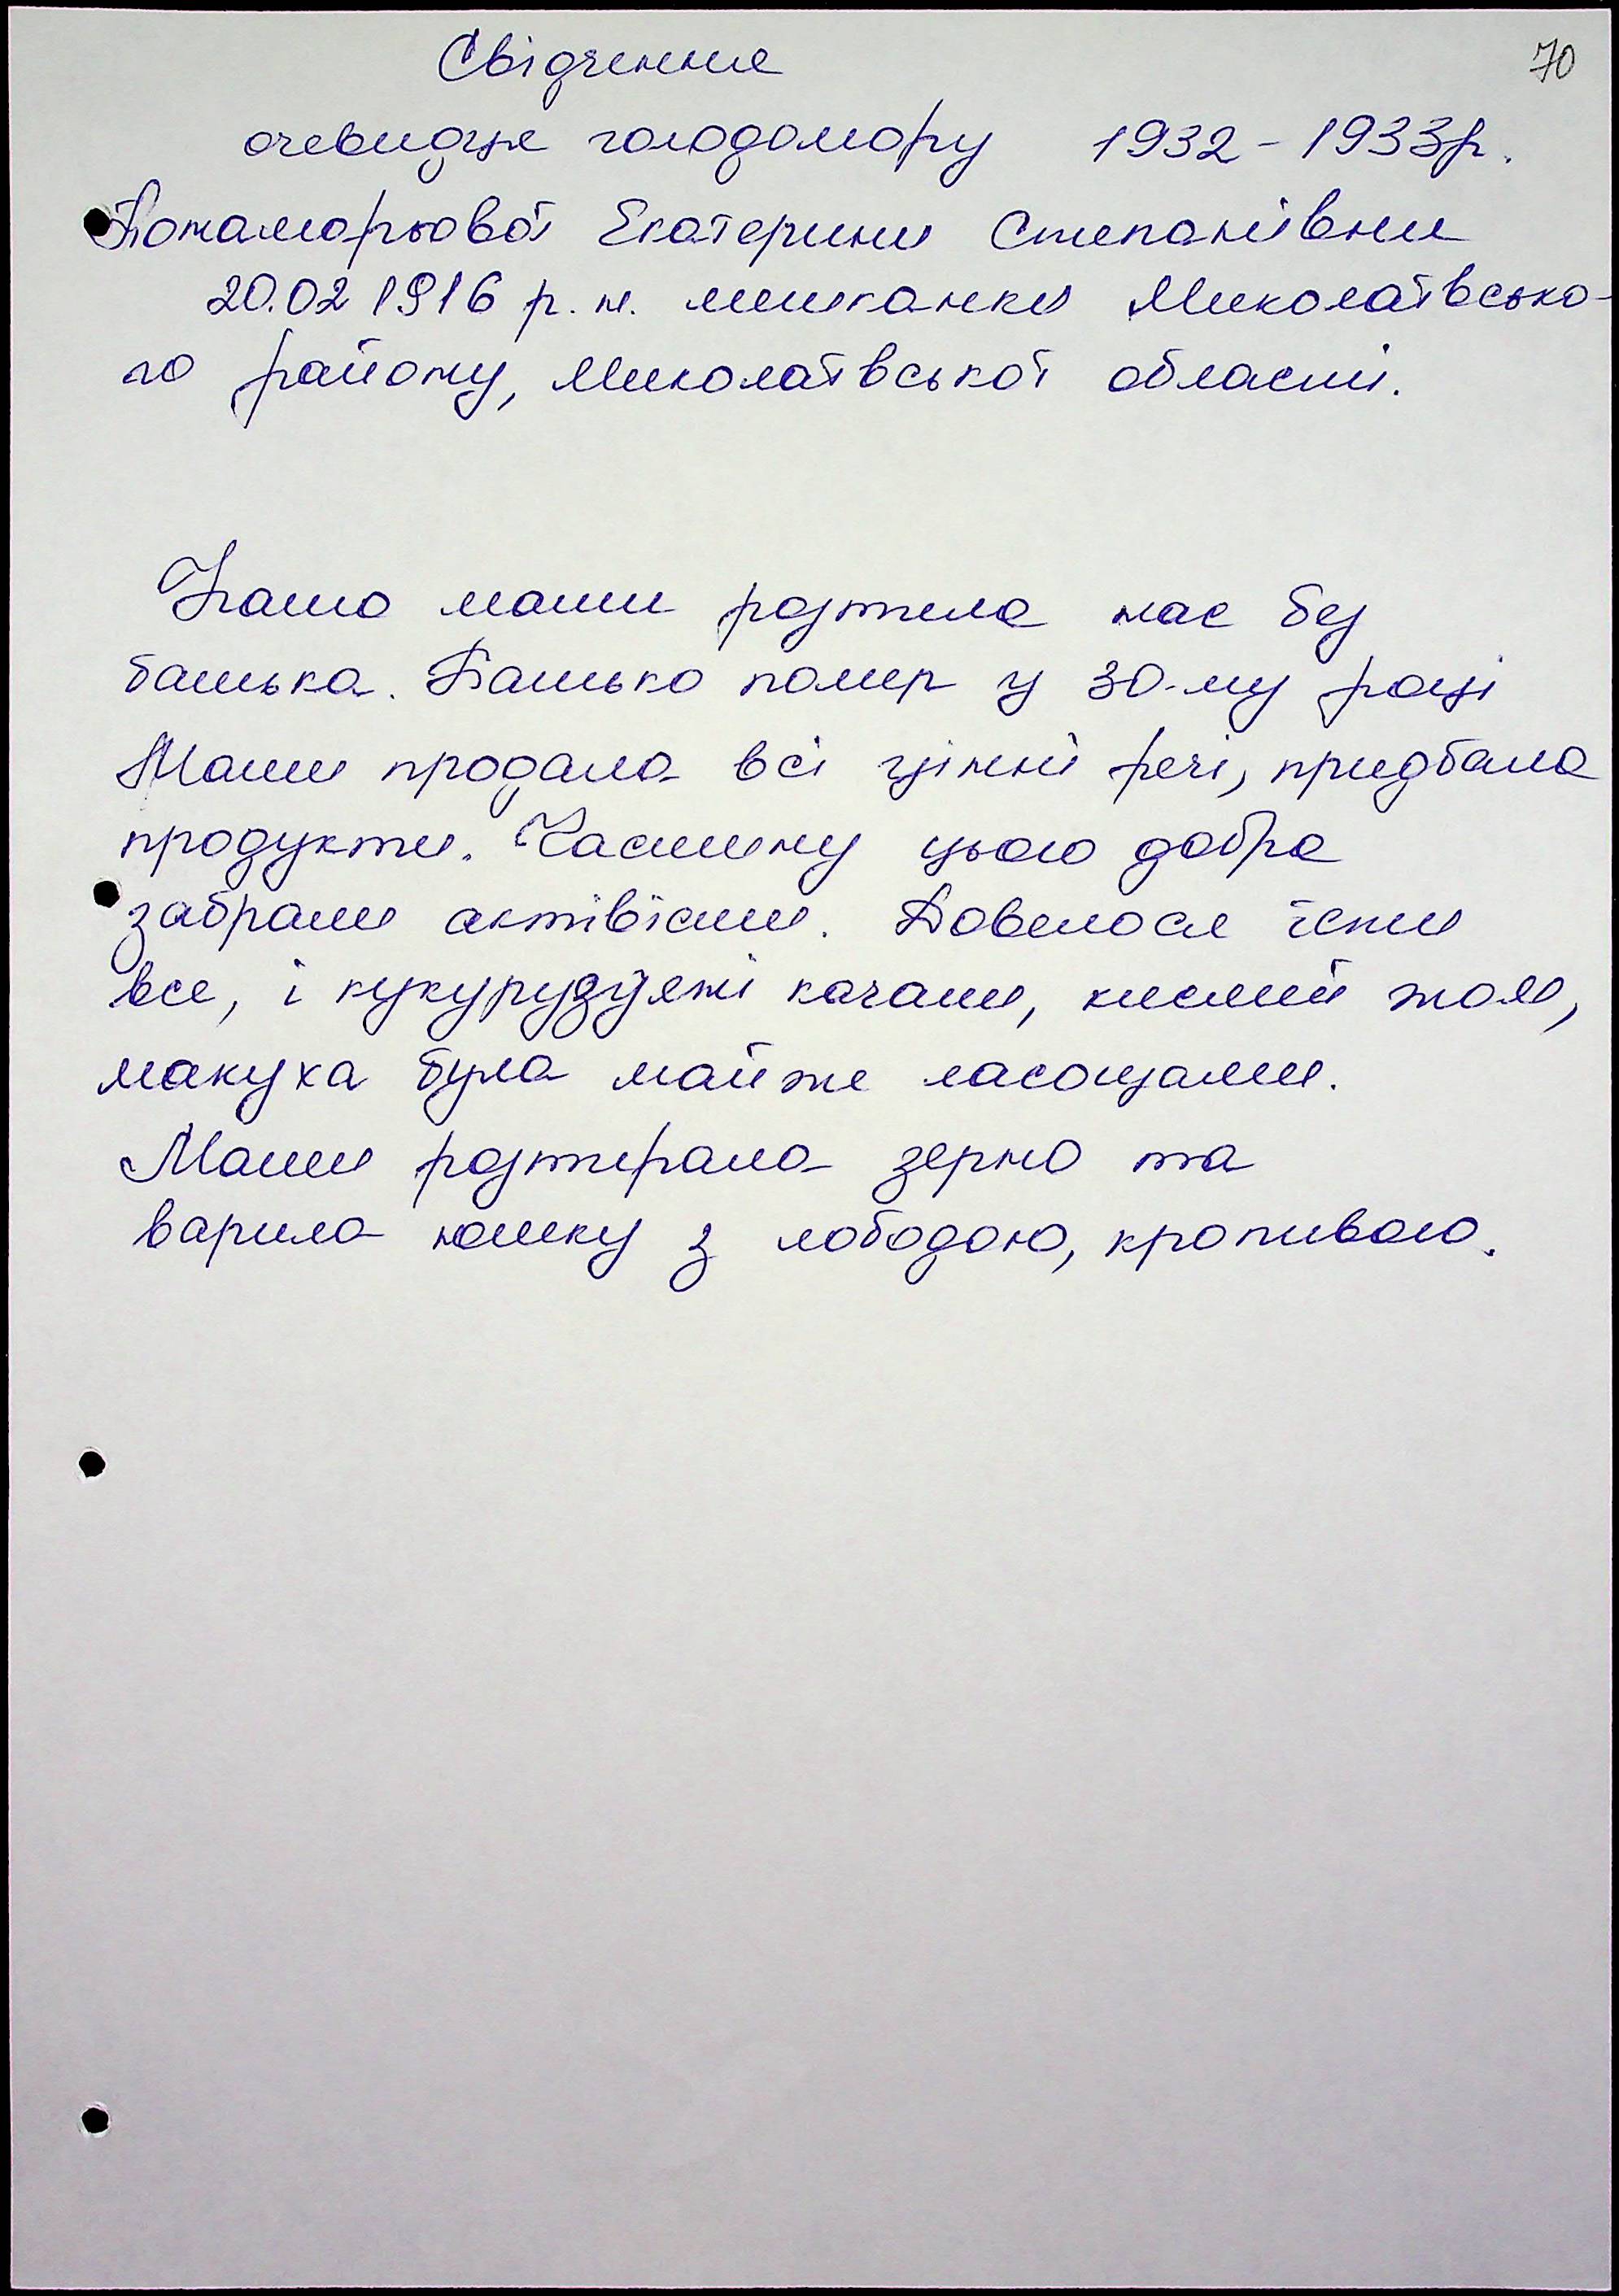 Свідчення
70
очевидця голодомору 1932-1933р.
Понамарьової Екатерини Степанівни
20.02 1916 р.н. мешканки Миколаївсько-
го району, Миколаївської області.
Наша мати ростила нас без
батька. Батько помер у 30-му році
Мати продала всі цінні речі, придбала
продукти. Частину цього добра
забрали актівісти. Довелося їсти
все, і кукурудзяні качани, кислий жом,
макуха була майже ласощами.
Мати розтирала зерно та
варила юшку з лободою, кропивою.